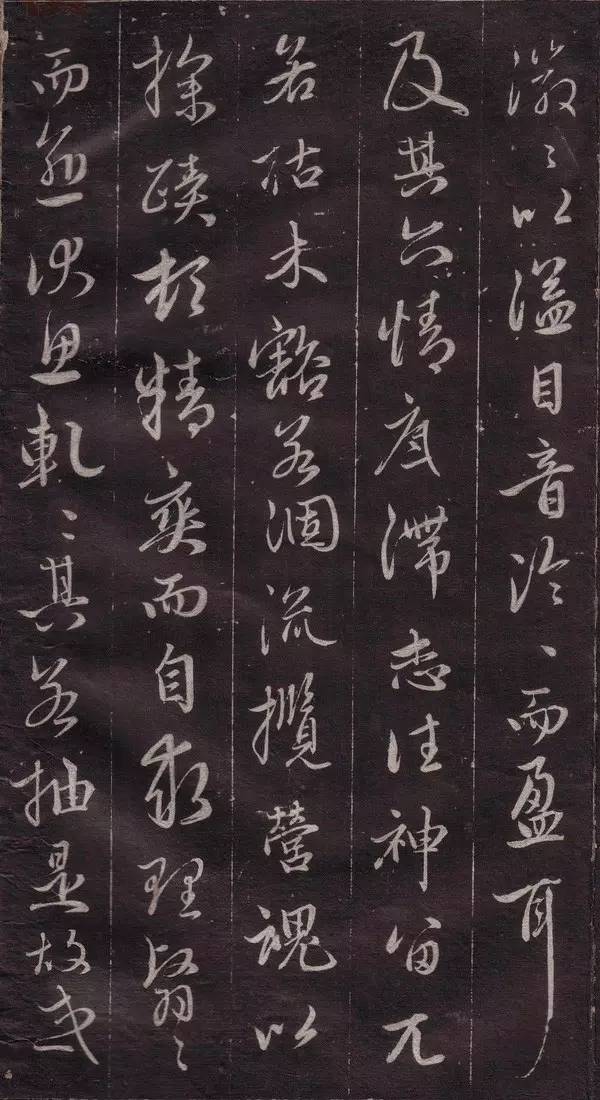 徽〻以溢目音泠〻而盈耳
及其六情底滯志往神留兀
若枯木豁若涸流攬營魂以
探蹟頓精爽而自求理翳〻
而愈伏思軋〻其若抽是故或